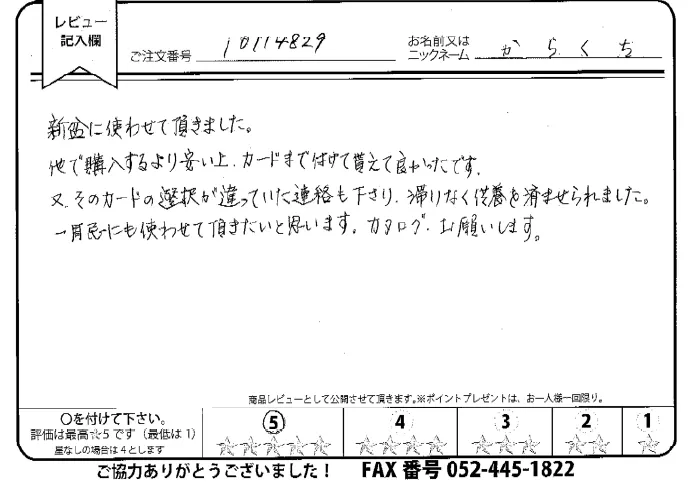 レビュー
記入欄
ご注文番号 10114829 お名前又は
ニックネーム からくち
新盆に使わせて頂きました。
他で購入するより安い上、カードまで付けて貰えて良かったです。
又、そのカードの選択が違っていた連絡も下さり、滞りなく供養を済ませられました。
一周忌にも使わせて頂きたいと思います。カタログ、お願いします。
商品レビューとして公開させて頂きます。※ポイントプレゼントは、お一人様一回限り。
○を付けて下さい。
評価は最高☆5です（最低は1）
星なしの場合は4とします
5 4 3 2 1
☆☆☆☆☆ ☆☆☆☆ ☆☆☆ ☆☆ ☆
ご協力ありがとうございました！ FAX 番号 052-445-1822